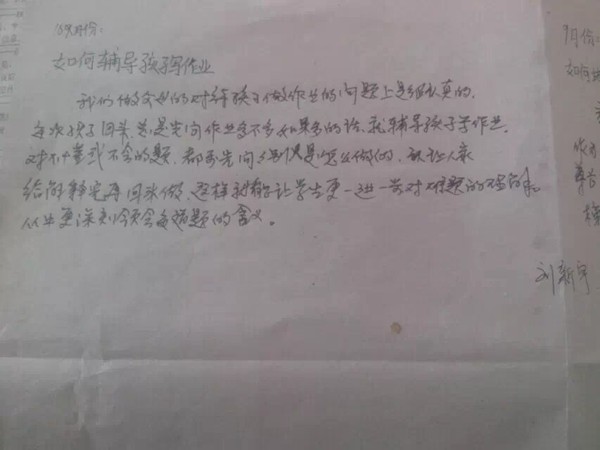 10月份:
如何辅导孩子写作业
我们做父母的对待孩子做作业的问题上是很认真的,
每次孩子回来,总是先问作业多不多如果多的话,就辅导孩子写作业,
对不懂或不会的题,都要先问 是怎么做的,就让人家
给解释完再回来做,这样就能让学生更一进一步对难题的
从中更深刻领会 题的含义。
刘新宇
9月份:
如何